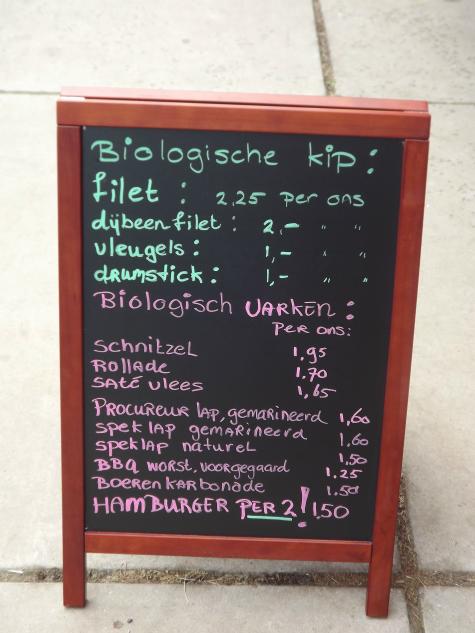 Biologische kip:
filet : 2,25 per ons
dijbeenfilet : 2,- " "
vleugels : 1,- " "
drumstick : 1,- " "
Biologisch VARKEN :
PER ONS:
Schnitzel 1,95
Rollade 1,70
Saté vlees 1,65
Procureur lap, gemarineerd 1,60
spek lap gemarineerd 1,60
speklap naturel 1,50
BBQ worst, voorgegaard 1,25
Boeren karbonade 1,50
HAMBURGER PER 2! 1,50